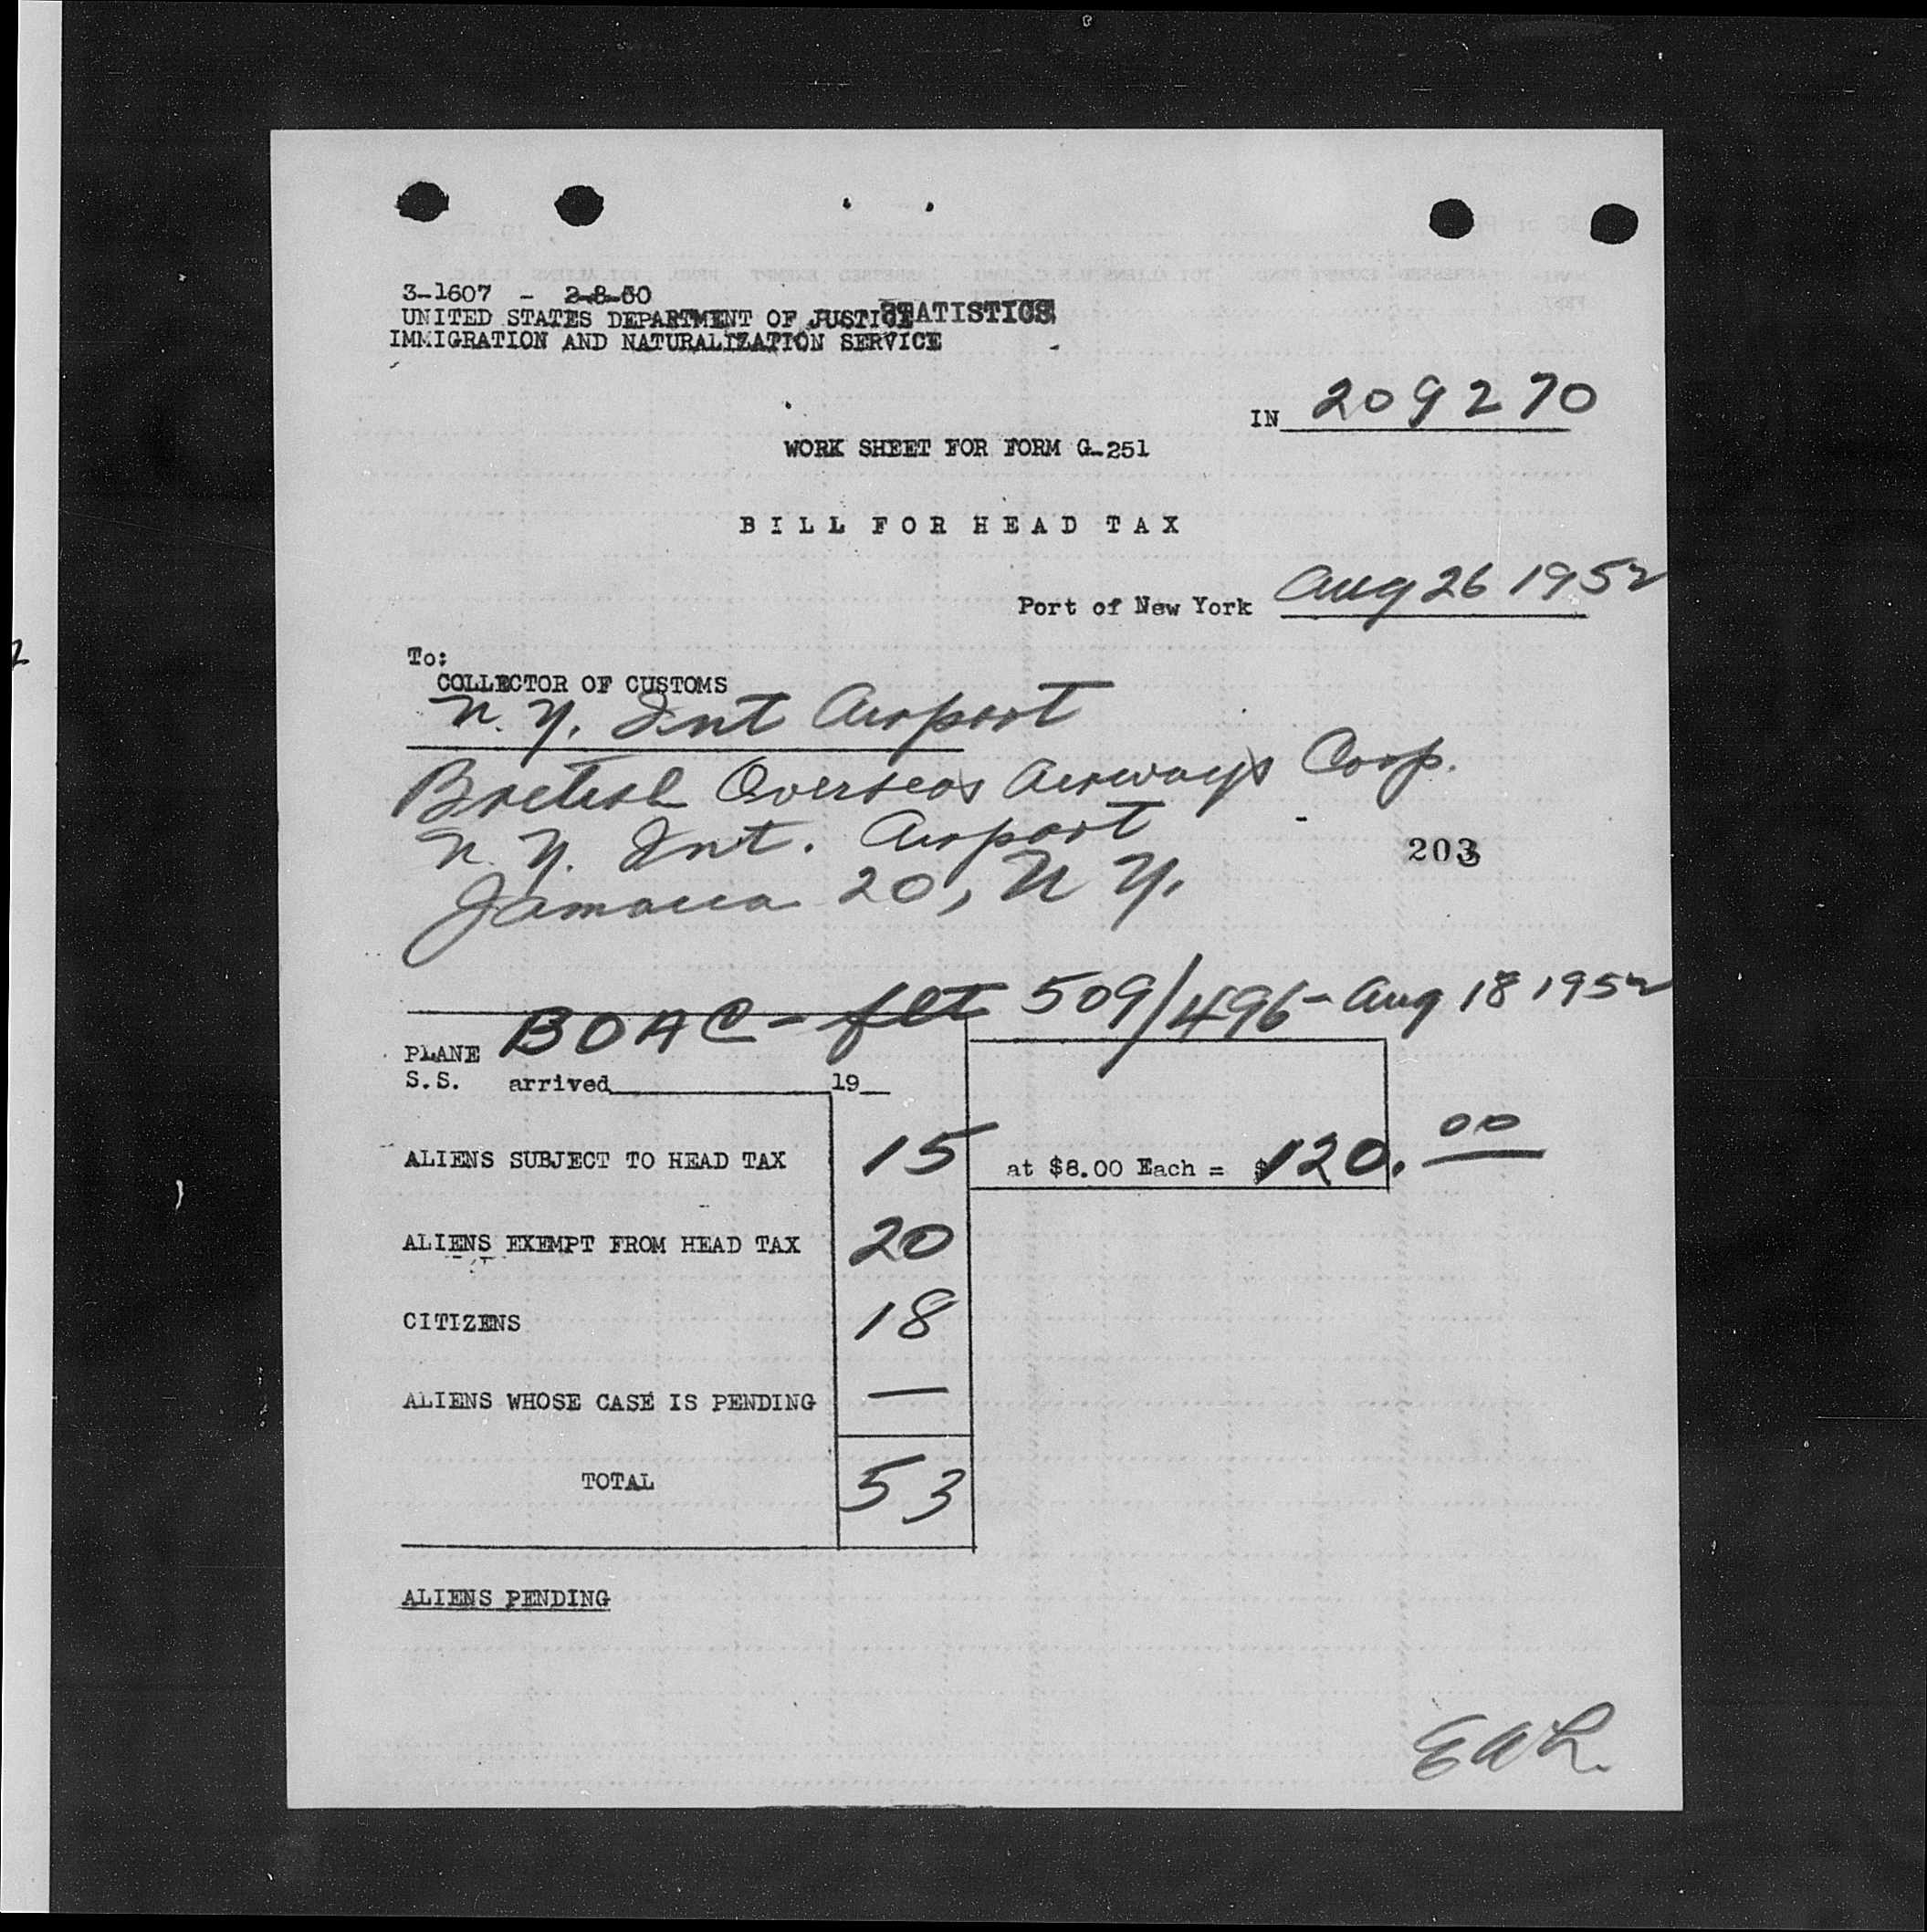 3-1607 - 2-8-50
UNITED STATES DEPARTMENT OF JUSTICE STATISTICS
IMMIGRATION AND NATURALIZATION SERVICE
IN 209270
WORK SHEET FOR FORM G-251
BILL FOR HEAD TAX
Port of New York Aug 26 1952
To:
COLLECTOR OF CUSTOMS
N.Y. Int Airport
British Overseas Airways Corp.
N.Y. Int. Airport
203
Jamaica 20, N Y.
PLANE BOAC - flt 509/496 - Aug 18 1952
S.S. arrived 19
ALIENS SUBJECT TO HEAD TAX 15 at $8.00 Each = $120.00
ALIENS EXEMPT FROM HEAD TAX 20
CITIZENS 18
ALIENS WHOSE CASE IS PENDING —
TOTAL 53
ALIENS PENDING